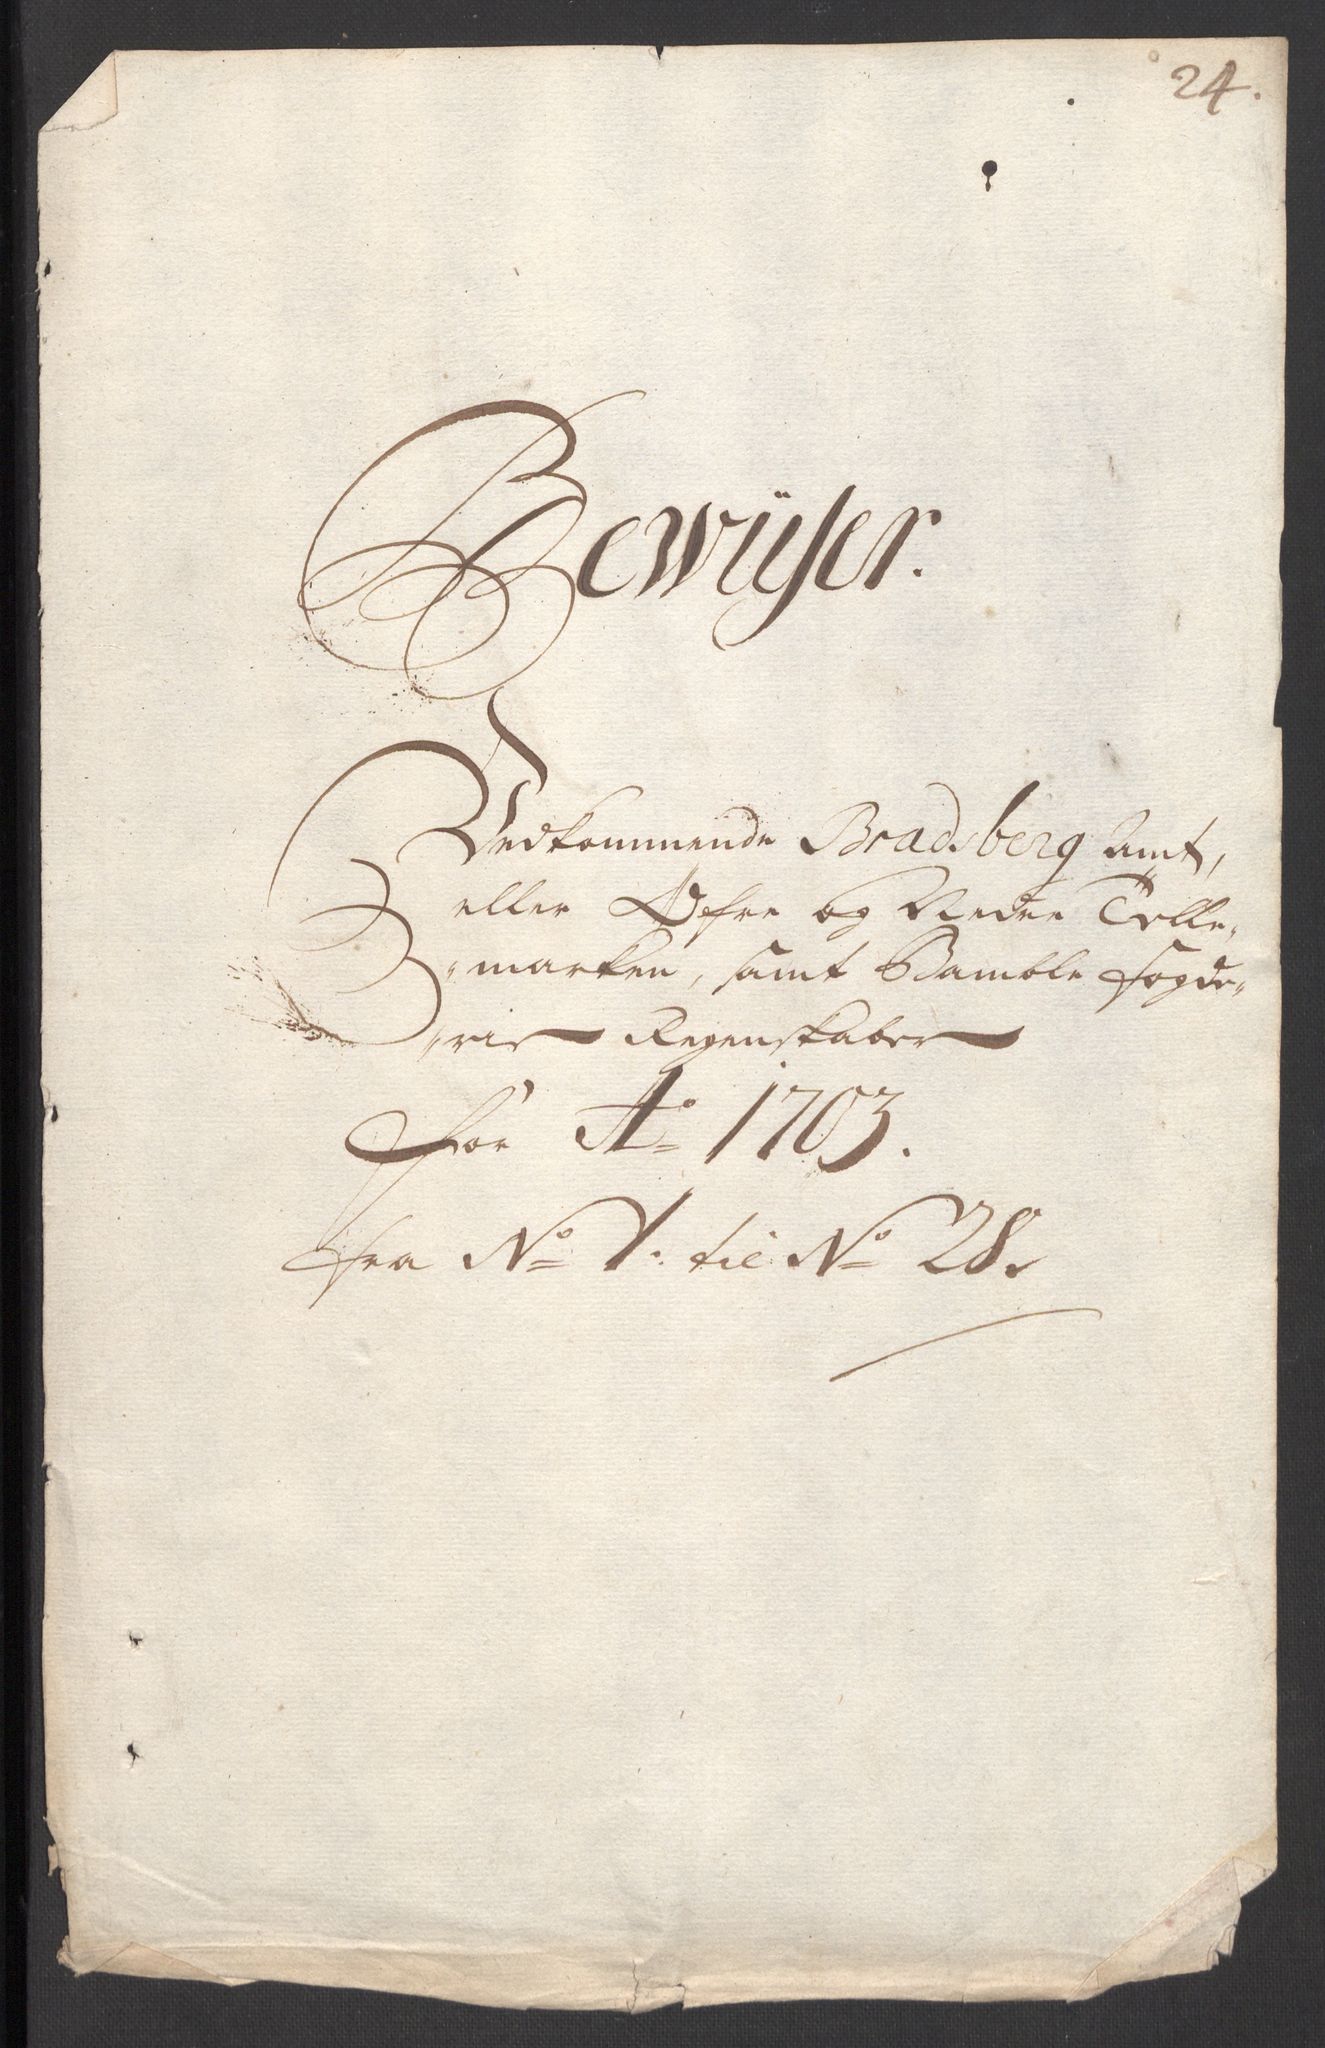 24.
Bewÿser.
Vedkommende Bradsberg Amt,
eller Øfre og Nedre Telle-
-marken, samt Bamble fogde-
-rie Regenskaber
for Ao 1703.
fra No 1. til No 28.